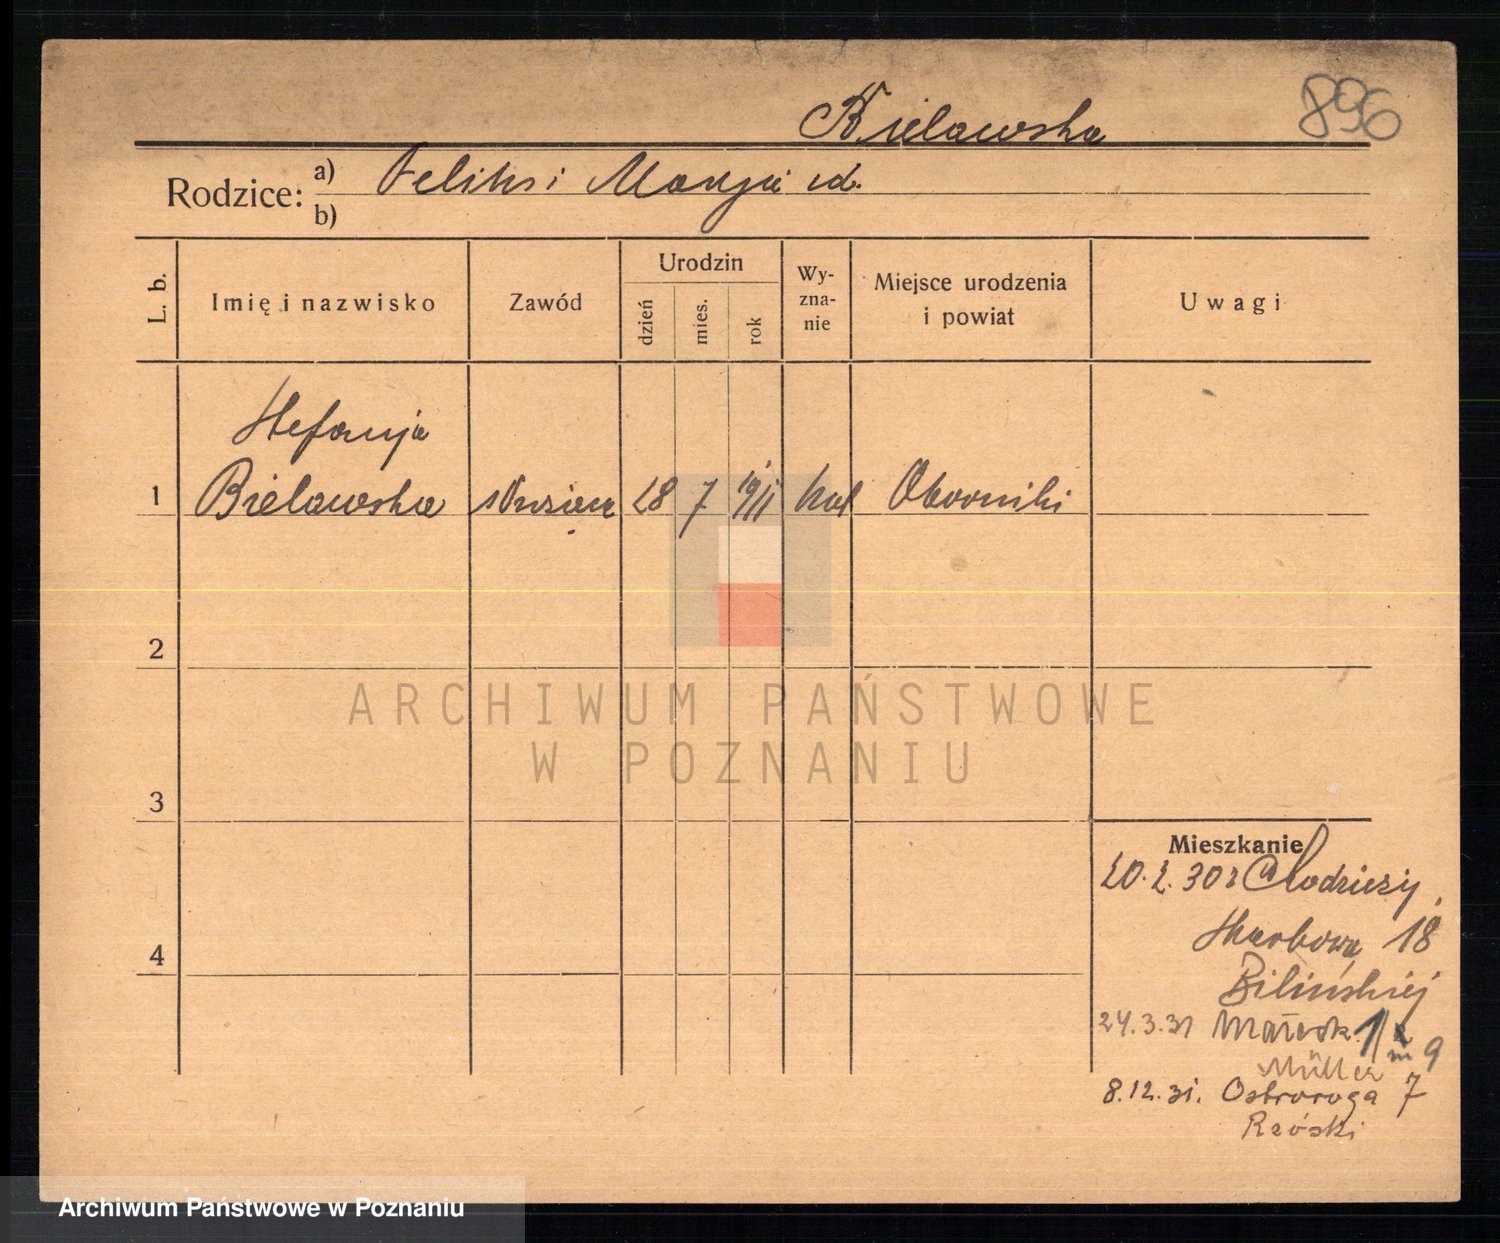 896
Bielawska
Rodzice: a) Feliks i Maryja
b)
L. b.
Imię i nazwisko
Zawód
Urodzin
dzień
mies.
rok
Wy-
zna-
nie
Miejsce urodzenia
i powiat
Uwagi
Stefanja
1 Bielawska służąca 28 7 1911 kat Oborniki
2
3
4
Mieszkanie
20.2.30 z Chodzieży,
Skarbowa 18
Bilińskiej
24.3.31
Müller m 9
8.12.31. Ostroroga 7
Rzóski
ARCHIWUM PAŃSTWOWE
W POZNANIU
Archiwum Państwowe w Poznaniu